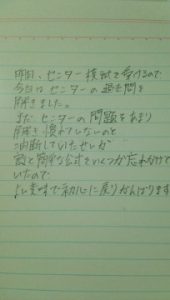 明日、センター模試を受けるので
今日はセンターの過去問を
解きました。
まだセンターの問題をあまり
解き慣れてしないのと
油断していたせいか
割と簡単な公式をいくつか忘れかけて
いたので
よい意味で初心に戻りがんばります